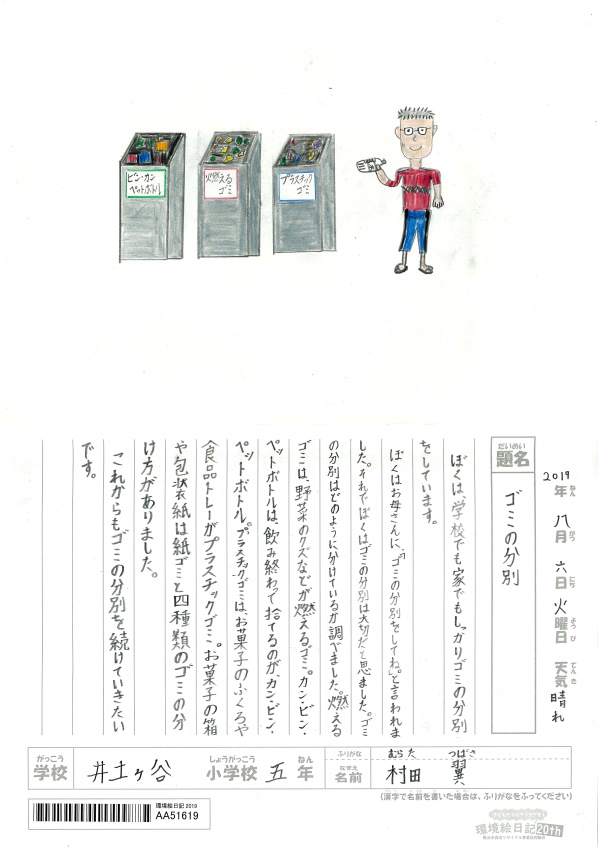 ビン・カン
ペットボトル
燃える
ゴミ
プラスチック
ゴミ
2019年 八月 六日 火曜日 天気 晴れ
ねん がつ にち よう び てんき
だいめい
題名
ゴミの分別
ぼくは、学校でも家でもしっかりゴミの分別
をしています。
ぼくはお母さんに、「ゴミの分別をしてね。」と言われま
した。それでぼくはゴミの分別は大切だと思ました。ゴミ
の分別はどのように分けているか調べました。燃える
ゴミは、野菜のクズなどが燃えるゴミ。カン・ビン・
ペットボトルは、飲み終わって捨てるのが、カン・ビン・
ペットボトル。プラスチックゴミは、お菓子のふくろや
食品トレーがプラスチックゴミ。お菓子の箱
や包装紙は紙ゴミと四種類のゴミの分
け方がありました。
これからもゴミの分別を続けていきたい
です。
がっこう しょうがっこう ねん ふりがな むらた つばさ
学校 井土ヶ谷 小学校 五年 なまえ 名前 村田 翼
(漢字で名前を書いた場合は、ふりがなをふってください)
環境絵日記 2019
AA51619
環境絵日記 20th